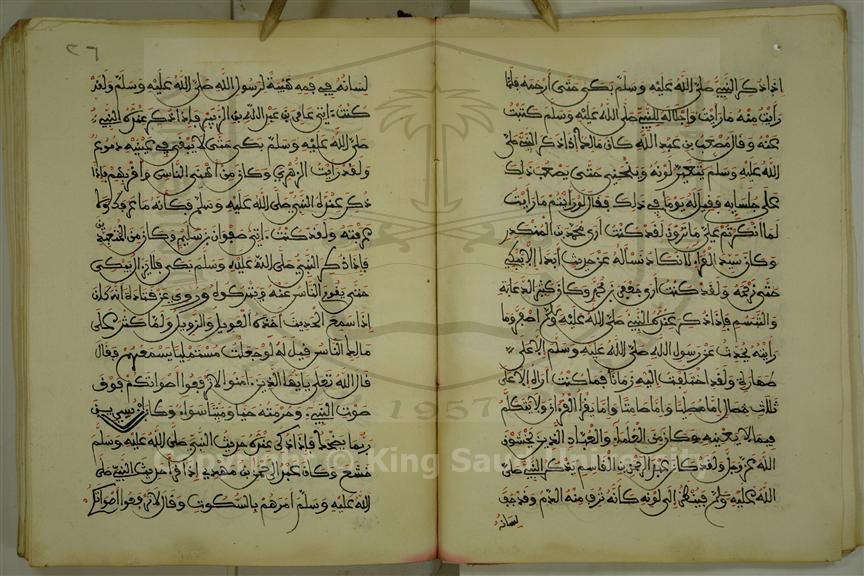 اذا ذكر النبي صلى الله عليه وسلم بكى حتى أرحمه فلما
رايت منه ما رايت وإجلاله للنبي صلى الله عليه وسلم كتبت
عنه وقال مصعب بن عبد الله كان مالك اذا ذكر النبي صلى
الله عليه وسلم يتغير لونه وينحني حتى يصعب ذلك
على جلسايه فقيل له يوما في ذلك فقال لو رايتم ما رايت
لما انكرتم علي ما ترون لقد كنت ارى محمد بن المنكدر
وكان سيد القراء لا نكاد نسأله عن حديث ابدا الا يبكي
حتى نرحمه ولقد كنت ارى جعفر بن محمد وكان كثير الدعابة
والتبسم فاذا ذكر عنده النبي صلى الله عليه وسلم اصفر وما
رايته يحدث عن رسول الله صلى الله عليه وسلم الا على
طهارة ولقد اختلفت اليه زمانا فما كنت اراه الا على
ثلاث خصال اما مصليا واما صامتا واما يقرأ القرآن ولا يتكلم
فيما لا يعنيه وكان من العلماء والعباد الذين يخشون
الله عز وجل ولقد كان عبد الرحمن بن القاسم يذكر النبي صلى
الله عليه وسلم فينظر الى لونه كانه نزف منه الدم وقد جف
لسانه
٢٦
لسانه في فمه هيبة لرسول الله صلى الله عليه وسلم ولقد
كنت ءاتي عامر بن عبد الله بن الزبير فاذا ذكر عنده النبي
صلى الله عليه وسلم بكى حتى لا يبقى في عينيه دموع
ولقد رايت الزهري وكان من أهنى الناس واقربهم فاذا
ذكر عنده النبي صلى الله عليه وسلم فكانه ما عرفك ولا
عرفته ولقد كنت ءاتي صفوان بن سليم وكان من المتعبدين
فاذا ذكر النبي صلى الله عليه وسلم بكى فلا يزال يبكي
حتى يقوم الناس عنه ويتركوه وروي عن قتادة انه كان
اذا سمع الحديث اخذه العويل والزويل ولما كثر على
مالك الناس قيل له لو جعلت مستمليا يسمعهم فقال
قال الله تعلى يايها الذين ءامنوا لا ترفعوا أصواتكم فوق
صوت النبي وحرمته حيا وميتا سواء وكان ابن سيرين
ربما يضحك فاذا ذكر عنده حديث النبي صلى الله عليه وسلم
خشع وكان عبد الرحمن بن مهدي اذا قرأ حديث النبي صلى
الله عليه وسلم امرهم بالسكوت وقال لا ترفعوا أصواتكم
1957
Copyright © King Saud University